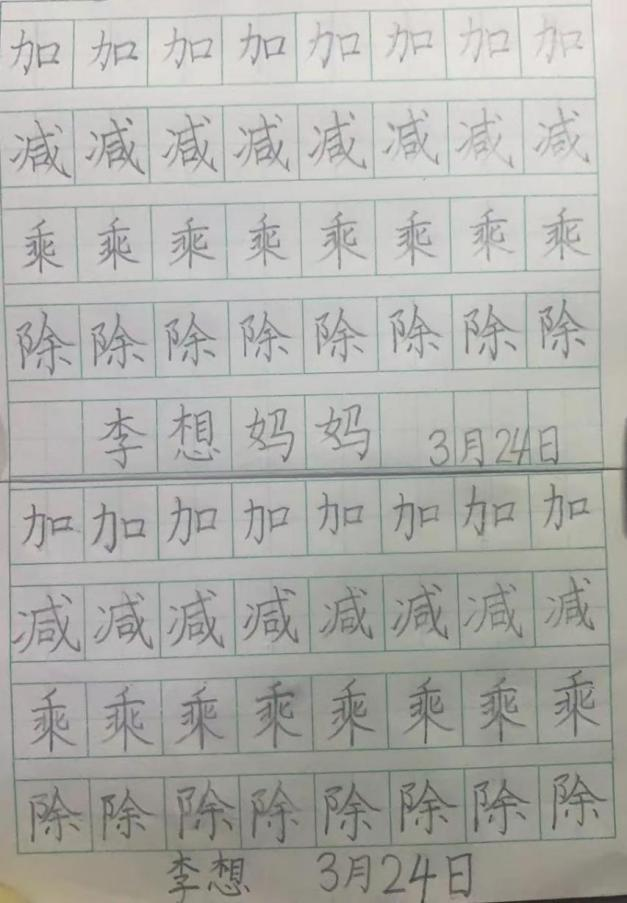 加加加加加加加加
减减减减减减减减
乘乘乘乘乘乘乘乘
除除除除除除除除
李想妈妈 3月24日
加加加加加加加加
减减减减减减减减
乘乘乘乘乘乘乘乘
除除除除除除除除
李想 3月24日